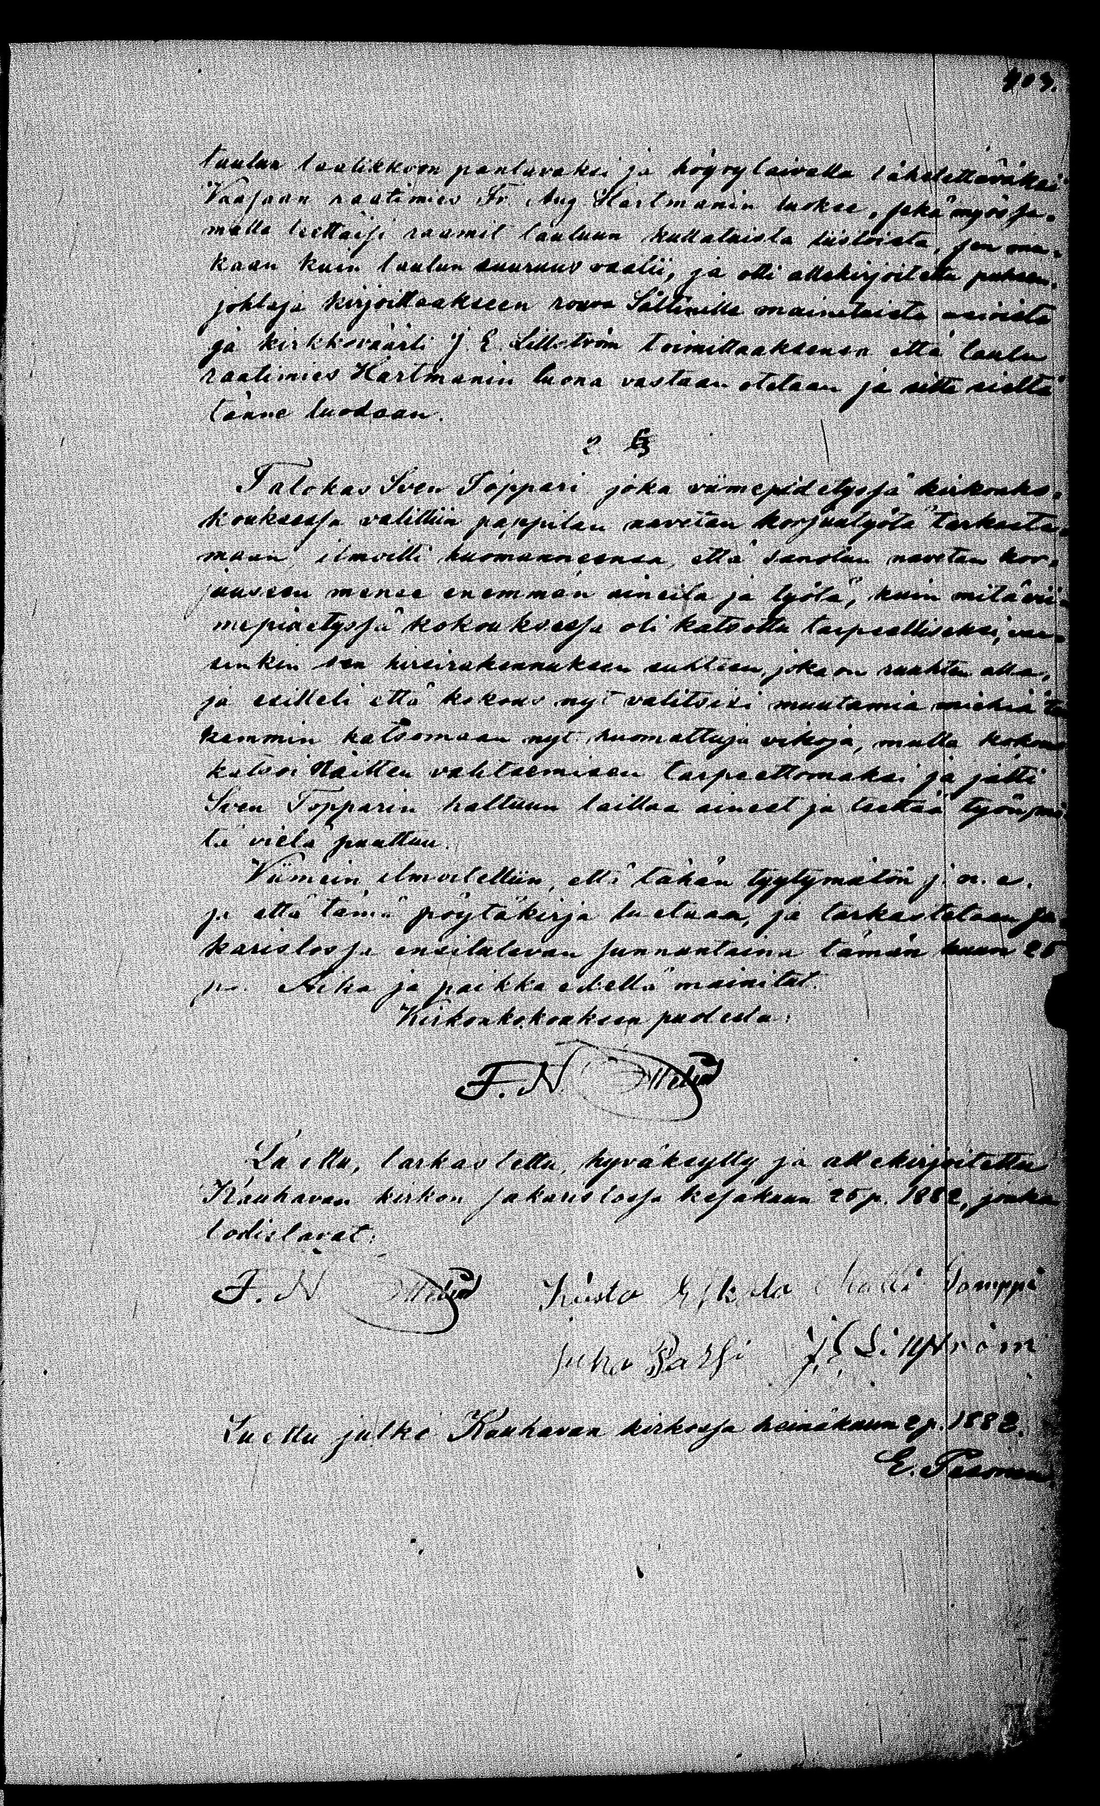 taulun laatikkoon pantavaksi ja höyrylaivalla lähetettäväksi
Vaasaan raatimies Fr. Aug Hartmanin luokse, sekä myös sa-
malla teettäisi raamit tauluun kullatuista listoista, sen mu-
kaan kuin taulun suuruus vaatii, ja otti allekirjoitettu puheen-
johtaja kirjoittaakseen rouva mainituista asioista
ja kirkkoväärti J. E. Lillström toimittaaksensa että taulu
raatimies Hartmanin luona vastaan otetaan ja sitte sieltä
tänne tuodaan.
2 §
Talokas Sven Toppari joka viimepidetyssä kirkonko-
kouksessa valittiin pappilan navetan korjuutyötä tarkasta-
maan, ilmoitti huomanneensa, että sanotun navetan kor-
juuseen menee enemmän aineita ja työtä, kuin mitä vii-
mepidetyssä kokouksessa oli katsottu tarpeelliseksi, var-
sinkin sen hirsirakennuksen suhteen, joka on
ja esitteli että kokous nyt valitsisi muutamia miehiä tar-
kemmin katsomaan nyt huomattuja vikoja, mutta kokous
katsoi näitten valitsemisen tarpeettomaksi ja jätti
Sven Topparin haltuun laittaa aineet ja teettää työn, mi-
tä vielä puuttuu.
Viimein ilmoitettiin, että tähän tyytymätön j. n. e.
ja että tämä pöytäkirja luetaan, ja tarkastetaan sa-
karistossa ensitulevan sunnuntaina tämän kuun 25
p. Aika ja paikka edellä mainitut.
Kirkonkokouksen puolesta:
F. N.
Luettu, tarkastettu, hyväksytty ja allekirjoitettu
Kauhavan kirkon sakaristossa kesäkuun 25 p. 1882, jonka
todistavat:
F. N. Kusto Matti Samppi
Juho Passi J. E. Lillström
Luettu julki Kauhavan kirkossa heinäkuun 2 p. 1882.
E. Pesonen